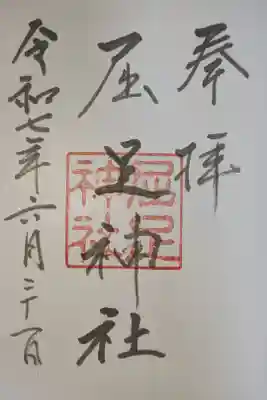 奉拝
屈足神社
屈足神社
令和七年六月二十一日